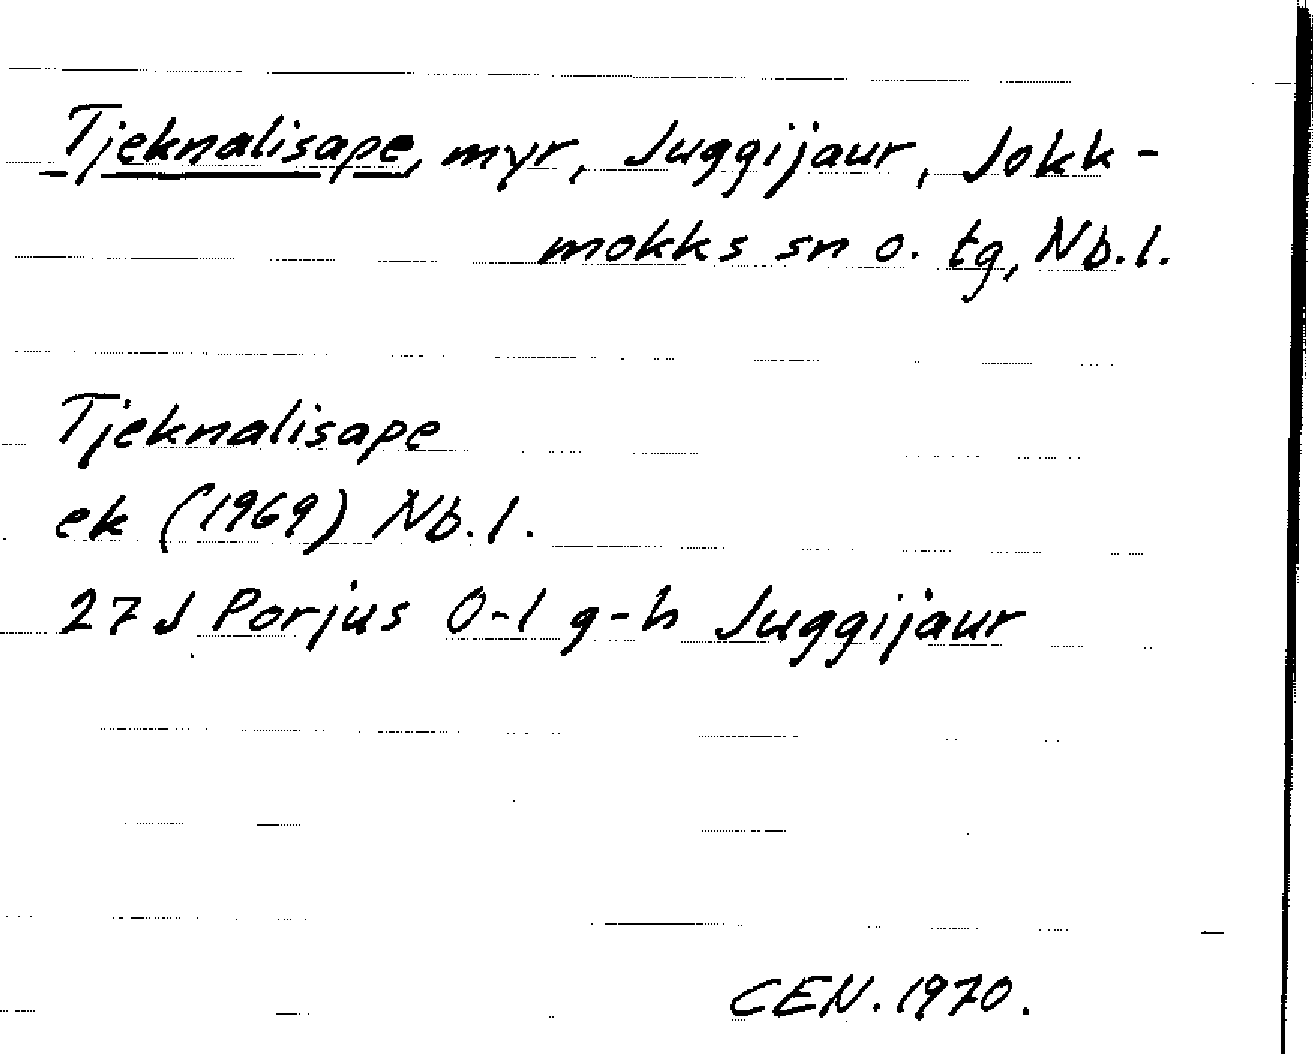 Tjeknalisape, myr, Juggijaur, Jokk-
mokks sn o. tg, Nb.l.
Tjeknalisape
ek (1969) Nb.l.
27 J Porjus 0-1 g-h Juggijaur
CEN. 1970.